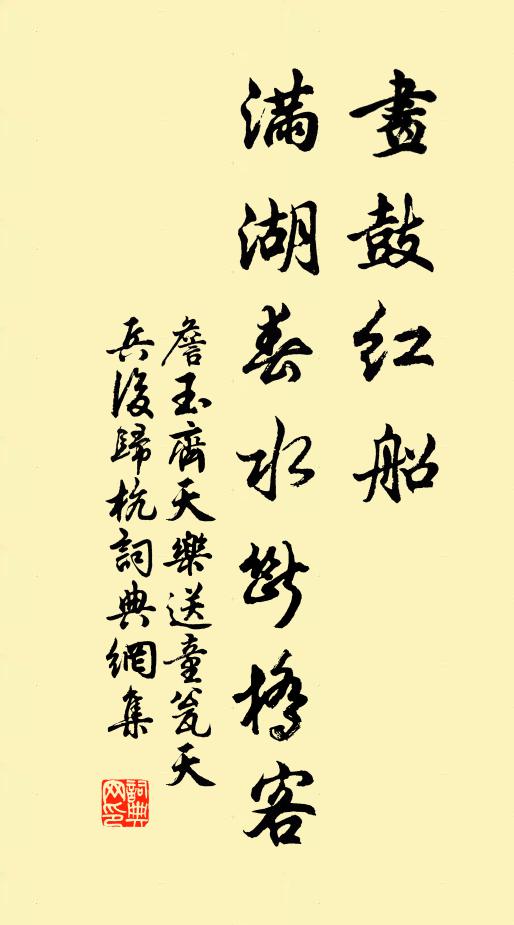 畫鼓紅船
滿湖春水斷橋客
詹玉齊天樂送童瓮天
兵後歸杭詞典網集
詞典網印